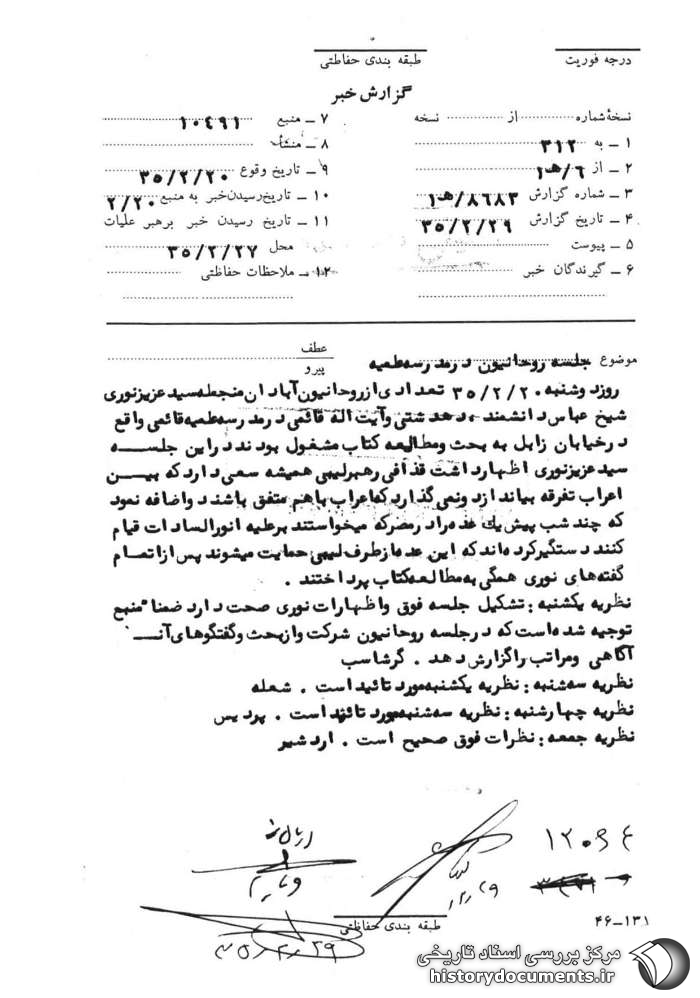 درجه فوریت
طبقه بندی حفاظتی
گزارش خبر
نسخهٔ شماره از نسخه
۱ ــ به ۳۱۲
۲ ــ از ۶/هـ۱
۳ ــ شماره گزارش ۸۶۸۳/هـ۱
۴ ــ تاریخ گزارش ۳۵/۲/۲۹
۵ ــ پیوست
۶ ــ گیرندگان خبر
۷ ــ منبع ۱۰۴۹۱
۸ ــ منشأ
۹ ــ تاریخ وقوع ۳۵/۲/۲۰
۱۰ ــ تاریخ رسیدن خبر به منبع ۲/۲۰
۱۱ ــ تاریخ رسیدن خبر برهبر علیات
محل ۳۵/۲/۲۷
۱۲ ــ ملاحظات حفاظتی
موضوع جلسه روحانیون در مدرسه علمیه
عطف
پیرو
روز دوشنبه ۳۵/۲/۲۰ تعدادی از روحانیون آبادان منجمله سید عزیز نوری
شیخ عباس دانشمند ، دهدشتی و آیت اله قائمی در مدرسه علمیه قائمی واقع
در خیابان زابل به بحث و مطالعه کتاب مشغول بودند در این جلســـه
سید عزیز نوری اظهار داشت قذافی رهبر لیبی همیشه سعی دارد که بیــن
اعراب تفرقه بیاندازد ونمی گذارد که اعراب با هم متفق باشند و اضافه نمود
که چند شب پیش یک عده را در مصر که میخواستند بر علیه انور السادات قیام
کنند دستگیر کرده اند که این عده از طرف لیبی حمایت میشوند پس از اتمام
گفته های نوری همگی به مطالعه کتاب پرداختند .
نظریه یکشنبه : تشکیل جلسه فوق و اظهارات نوری صحت دارد ضمنا" منبع
توجیه شده است که در جلسه روحانیون شرکت و از بحث و گفتگوهای آنــ
آگاهی ومراتب را گزارش دهد . گرشاسب
نظریه سه شنبه : نظریه یکشنبه مورد تائید است . شعله
نظریه چهارشنبه : نظریه سه شنبه مورد تائید است . پردیس
نظریه جمعه : نظرات فوق صحیح است . اردشیر
طبقه بندی حفاظتی
۳۵/۲/۲۹
۴۶ــ۱۳۱
مرکز بررسی اسناد تاریخی
historydocuments.ir